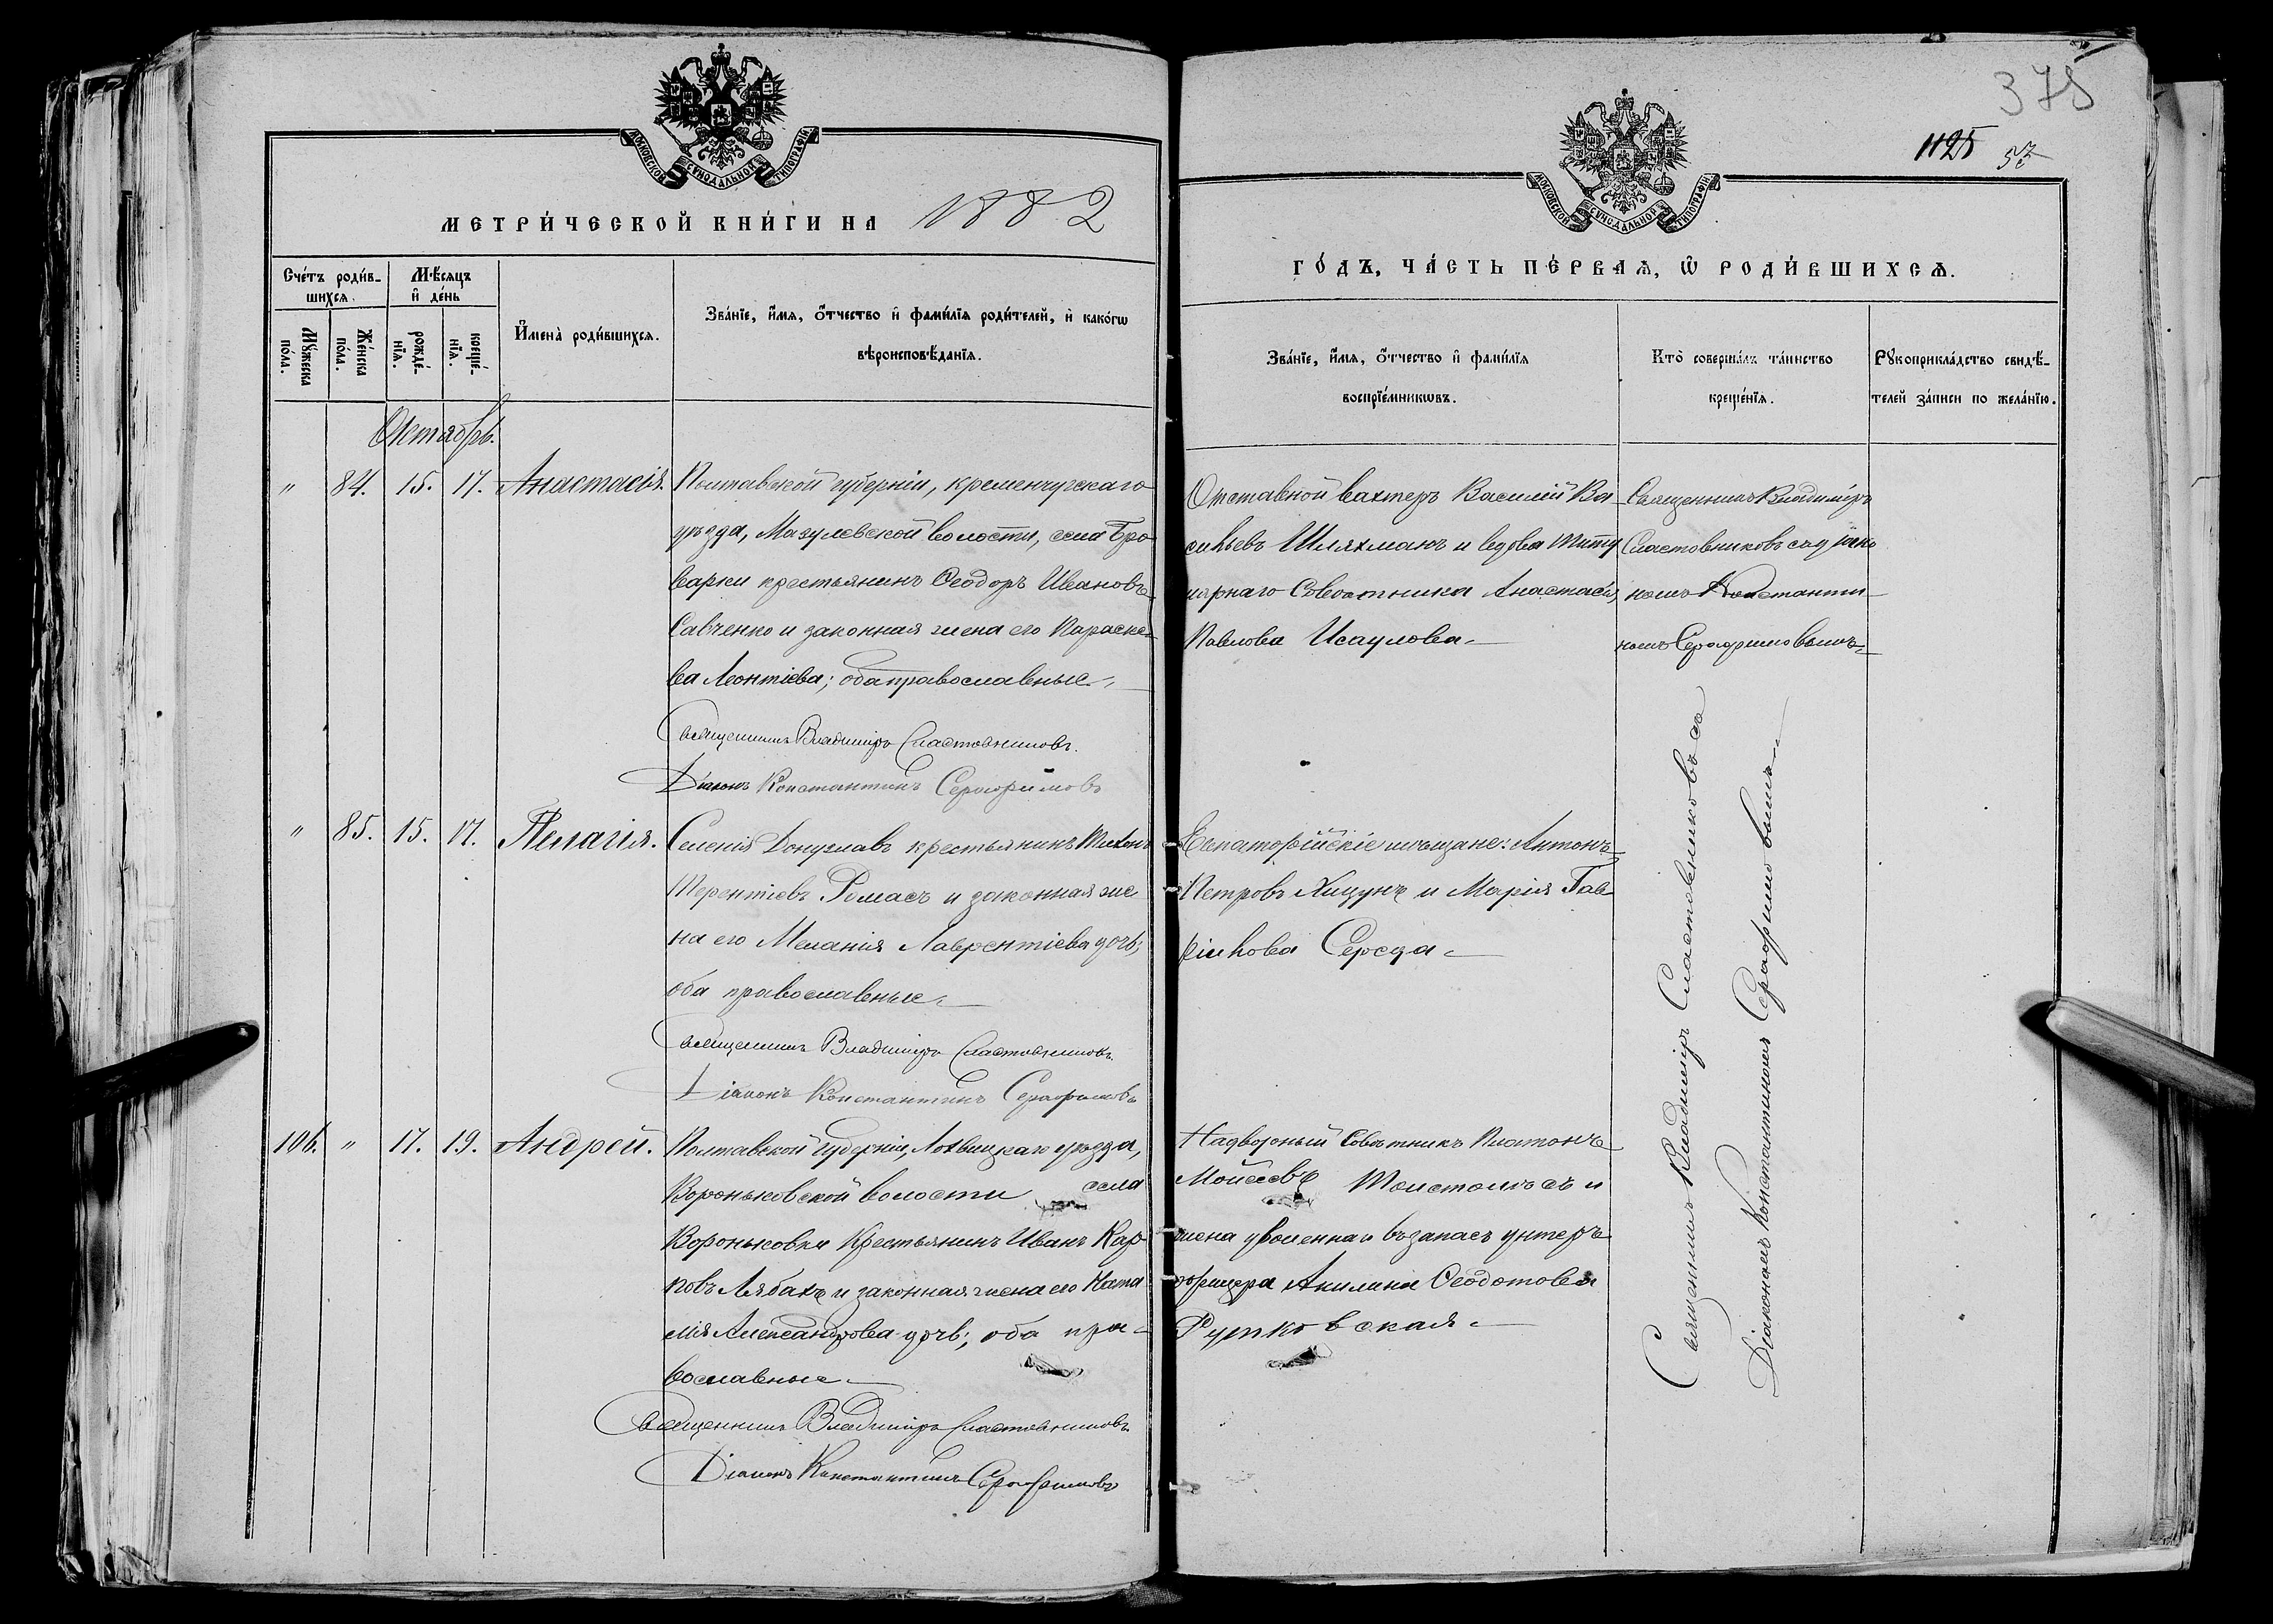 МОСКОВСКОЙ СѴНОДАЛЬНОЙ ТИПОГРАФІИ
МЕТРИ́ЧЕСКОЙ КНИ́ГИ НА 1882
Сче́тъ роди́в-
шихсѧ.
Мѣ́сѧцъ
и҆ де́нь
Мꙋ́жеска
по́ла.
Же́нска
по́ла.
рожде́-
нїѧ.
креще́-
нїѧ.
И҆мена̀ роди́вшихсѧ.
Зва́нїе, и҆́мѧ, ѻ҆́тчество и҆ фами́лїѧ роди́телей, и҆ како́гѡ
вѣроисповѣ́данїѧ.
Октябрь.
" 84. 15. 17. Анастасія. Полтавской губерніи, кременчугскаго
уѣзда, Мазулевской волости, села Бро
варки крестьянинъ Ѳеодоръ Ивановъ
Савченко и законная жена его Параске-
ва Леонтіева; оба православные.
Священникъ Владиміръ Сластовниковъ.
Діаконъ Константинъ Серафимовъ
" 85. 15. 17. Пелагія. Селенія Донузлавъ крестьянинъ Тихонъ
Терентіевъ Ромасъ и законная же
на его Меланія Лаврентіева дочь;
оба православные.
Священникъ Владиміръ Сластовниковъ.
Діаконъ Константинъ Серафимовъ
106. " 17. 19. Андрей. Полтавской губерніи, Лохвицкаго уѣзда,
Вороньковской волости села
Вороньковки Крестьянинъ Иванъ Кар
повъ Лябахъ и законная жена его Ната
лія Александрова дочь; оба пра-
вославные.
Священникъ Владиміръ Сластовниковъ.
Діаконъ Константинъ Серафимовъ
378
1125 57
МОСКОВСКОЙ СѴНОДАЛЬНОЙ ТИПОГРАФІИ
ГО́ДЪ, ЧА́СТЬ ПЕ́РВАѦ, Ѽ РОДИ́ВШИХСѦ.
Зва́нїе, и҆́мѧ, ѻ҆́тчество и҆ фами́лїѧ
воспрїе́мникѡвъ.
Кто̀ соверша́лъ та́инство
креще́нїѧ.
Рꙋкоприкла́дство свидѣ́-
телей за́писи по жела́нїю.
Отставной вахтеръ Василій Ва
сильевъ Шляхманъ и вдова Титу
лярнаго Совѣтника Анастасія
Павлова Исаулова
Священникъ Владиміръ
Сластовниковъ съ діако
номъ Константи
номъ Серафимовымъ
Евпаторійскіе мѣщане: Антонъ
Петровъ Хицунъ и Марія Гав
ріилова Середа
Надворный Совѣтникъ Платонъ
Мойсеевъ Толстолѣсъ и
жена уволеннаго въ запасъ унтеръ
офицера Акилина Ѳеодотова
Рутковская
Священникъ Владиміръ Сластовниковъ съ
Діакономъ Константиномъ Серафимовымъ